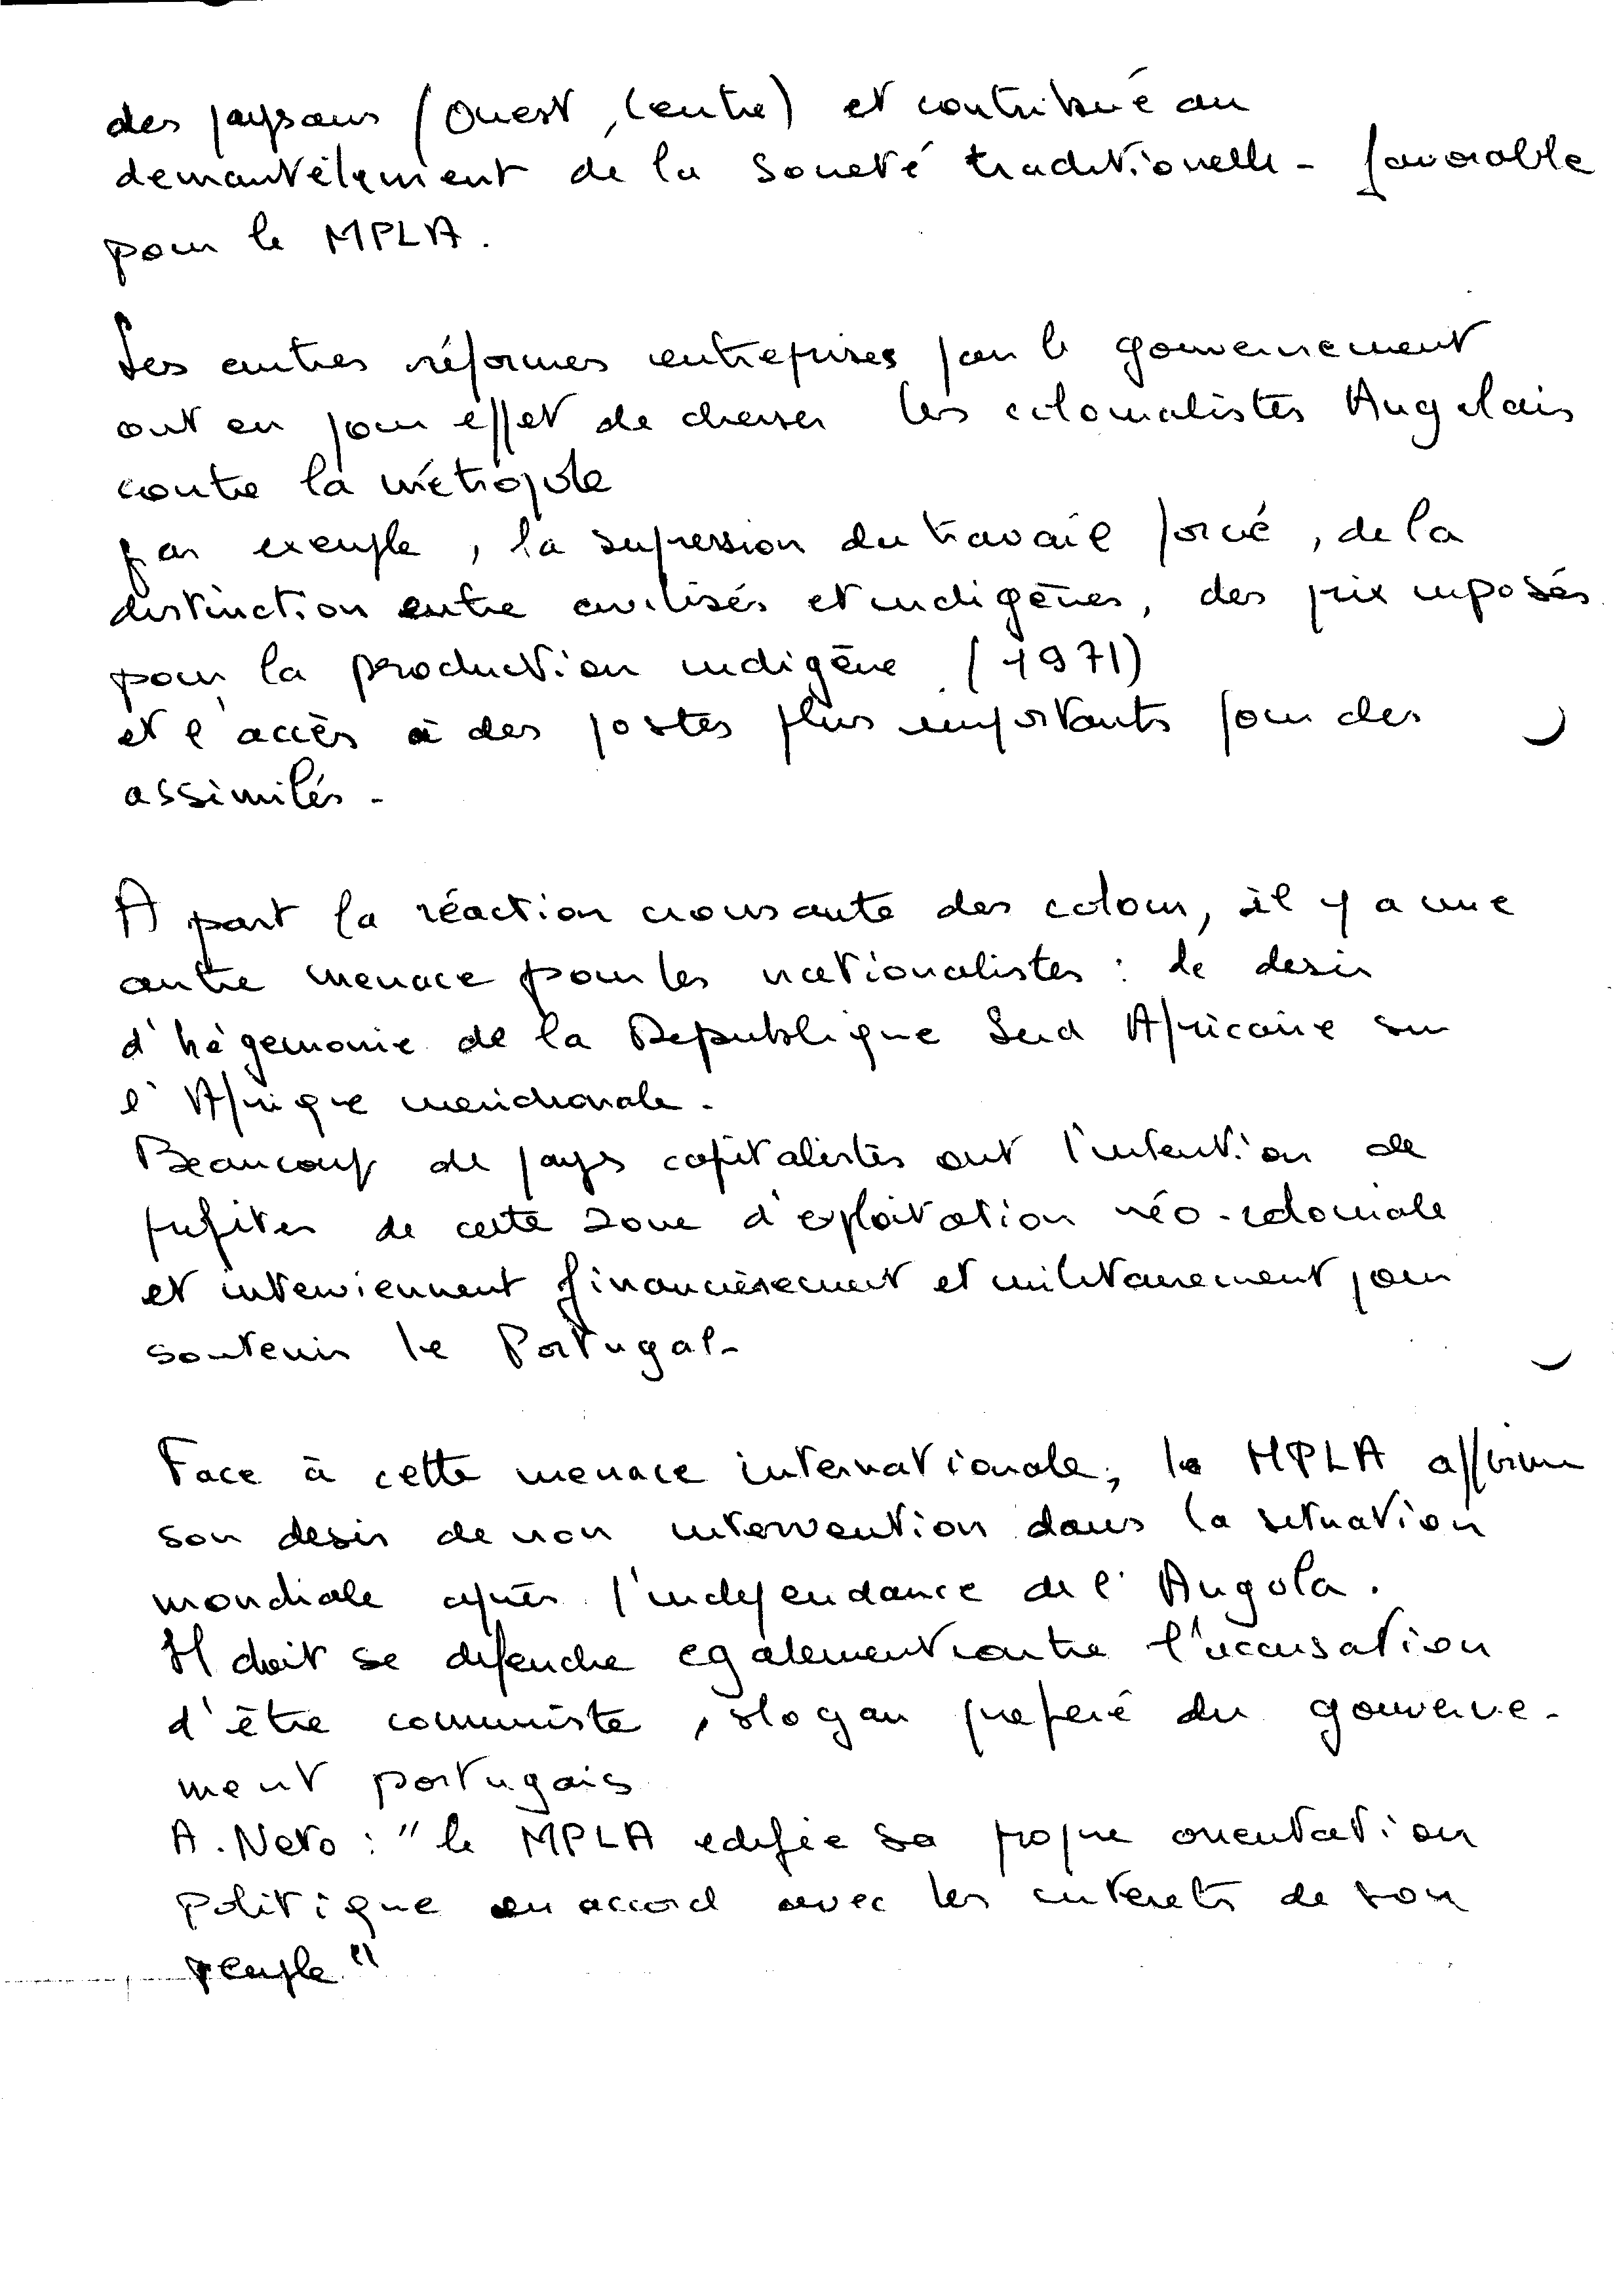 des paysans (Ouest, Centre) et contribué au
demantèlement de la société traditionelle - favorable
pour le MPLA.
Les autres réformes entreprises par le gouvernement
ont eu pour effet de dresser les colonialistes Angolais
contre la métropole
par exemple, la supression du travail forcé, de la
distinction entre civilisés et indigènes, des prix imposés
pour la production indigène (1971)
et l'accès à des postes plus importants pour des
assimilés -
A part la réaction croissante des colons, il y a une
autre menace pour les nationalistes : le desir
d'hégemonie de la Republique Sud Africaine sur
l'Afrique meridionale.
Beaucoup de pays capitalistes ont l'intention de
profiter de cette zone d'exploitation néo-coloniale
et interviennent financièrement et militairement pour
soutenir le Portugal-
Face à cette menace internationale, le MPLA affirme
son desir de non intervention dans la situation
mondiale après l'independance de l'Angola.
Il doit se defendre egalement contre l'accusation
d'être communiste, slogan preferé du gouverne-
ment portugais
A. Neto : "le MPLA edifie sa propre orientation
politique en accord avec les interets de son
peuple"